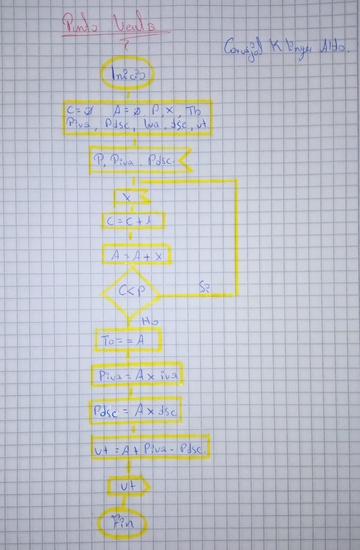 Punto Venta
Inicio
C=ø A=ø P, X, To
Piva, Pdsc, Iva, dsc, vt
P, Piva, Pdsc.
X
C = C + 1
A = A + X
C<P
Si
No
To = = A
Piva = A x iva
Pdsc = A x dsc
vt = A + Piva - Pdsc.
vt
Fin